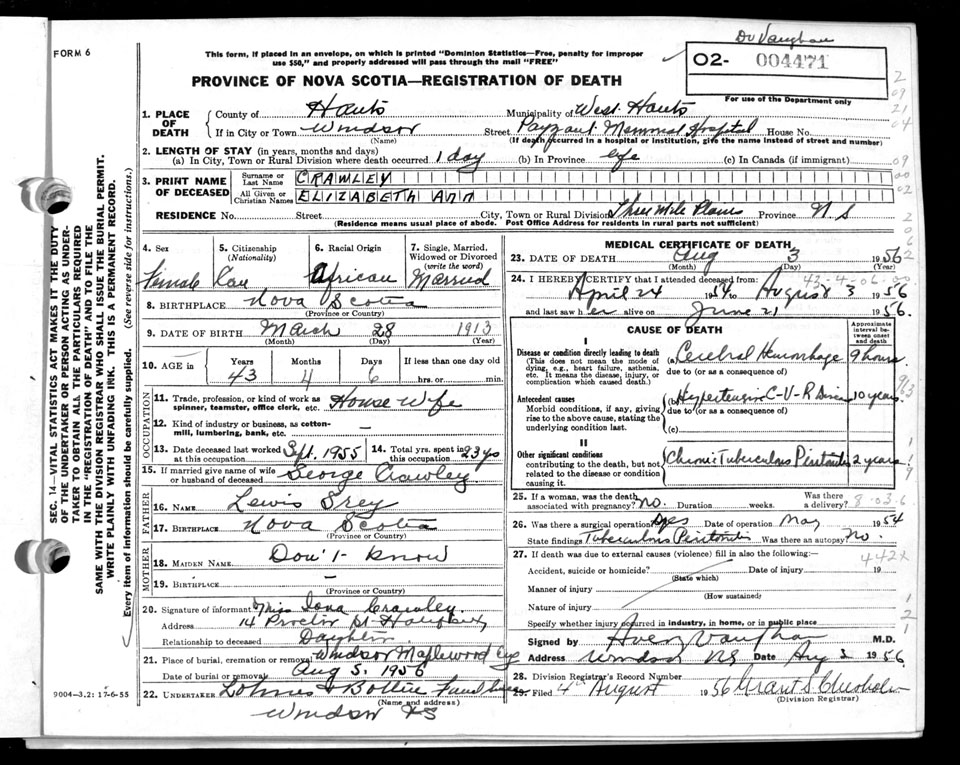 Dr Vaughan
FORM 6
This form, if placed in an envelope, on which is printed "Dominion Statistics—Free, penalty for improper
use $50," and properly addressed will pass through the mail "FREE"
PROVINCE OF NOVA SCOTIA—REGISTRATION OF DEATH
02- 004471
For use of the Department only
SEC. 14—VITAL STATISTICS ACT MAKES IT THE DUTY
OF THE UNDERTAKER OR PERSON ACTING AS UNDER-
TAKER TO OBTAIN ALL THE PARTICULARS REQUIRED
IN THE "REGISTRATION OF DEATH" AND TO FILE THE
SAME WITH THE DIVISION REGISTRAR WHO SHALL ISSUE THE BURIAL PERMIT.
WRITE PLAINLY WITH UNFADING INK. THIS IS A PERMANENT RECORD.
Every item of information should be carefully supplied. (See reverse side for instructions.)
1. PLACE OF DEATH
County of Hants Municipality of West Hants
If in City or Town Windsor Street Payzant Memorial Hospital House No.
(Name) (If death occurred in a hospital or institution, give the name instead of street and number)
2. LENGTH OF STAY (in years, months and days)
(a) In City, Town or Rural Division where death occurred 1 day (b) In Province life (c) In Canada (if immigrant)
3. PRINT NAME OF DECEASED
Surname or Last Name CRAWLEY
All Given or Christian Names ELIZABETH ANN
RESIDENCE No. Street City, Town or Rural Division Three Mile Plains Province N S
(Residence means usual place of abode. Post Office Address for residents in rural parts not sufficient)
4. Sex 5. Citizenship (Nationality) 6. Racial Origin 7. Single, Married, Widowed or Divorced (write the word)
Female Can African Married
8. BIRTHPLACE Nova Scotia
(Province or Country)
9. DATE OF BIRTH March 28 1913
(Month) (Day) (Year)
10. AGE in Years Months Days If less than one day old
43 4 6 hrs. or min.
OCCUPATION
11. Trade, profession, or kind of work as spinner, teamster, office clerk, etc. House Wife
12. Kind of industry or business, as cotton-mill, lumbering, bank, etc. —
13. Date deceased last worked at this occupation Sept. 1955 14. Total yrs. spent in this occupation 23 ys
15. If married give name of wife or husband of deceased George Crawley
FATHER
16. NAME Lewis
17. BIRTHPLACE Nova Scotia
(Province or Country)
MOTHER
18. MAIDEN NAME Don't know
19. BIRTHPLACE —
(Province or Country)
20. Signature of informant Miss Iona Crawley.
Address 14 Proctor St
Relationship to deceased Daughter
21. Place of burial, cremation or removal Windsor Maplewood
Date of burial or removal Aug 5, 1956
22. UNDERTAKER
(Name and address)
Windsor NS
9004-3.2: 17-6-55
MEDICAL CERTIFICATE OF DEATH
23. DATE OF DEATH Aug 3 1956
(Month) (Day) (Year)
24. I HEREBY CERTIFY that I attended deceased from:
April 24 1954 to August 3 1956
and last saw her alive on June 21 1956.
CAUSE OF DEATH
Approximate interval between onset and death
I
Disease or condition directly leading to death
(This does not mean the mode of dying, e.g., heart failure, asthenia, etc. It means the disease, injury, or complication which caused death.)
(a) Cerebral Hemorrhage 9 hours.
due to (or as a consequence of)
Antecedent causes
Morbid conditions, if any, giving rise to the above cause, stating the underlying cause last.
(b) Hypertensive C-V-R Disease 10 years.
due to (or as a consequence of)
(c)
II
Other significant conditions
contributing to the death, but not related to the disease or condition causing it.
Chronic Tuberculous Peritonitis 2 years.
25. If a woman, was the death associated with pregnancy? no. Duration weeks. Was there a delivery?
8-03.6
26. Was there a surgical operation? yes Date of operation May 1954
State findings Tuberculous Peritonitis Was there an autopsy? No.
27. If death was due to external causes (violence) fill in also the following:
442X
Accident, suicide or homicide? Date of injury 19
(State which)
Manner of injury
(How sustained)
Nature of injury
Specify whether injury occurred in industry, in home, or in public place
Signed by Vaughan M.D.
Address Windsor NS Date Aug 3 1956
28. Division Registrar's Record Number
29. Filed 4th August 1956 Grant S. Chisholm
(Division Registrar)